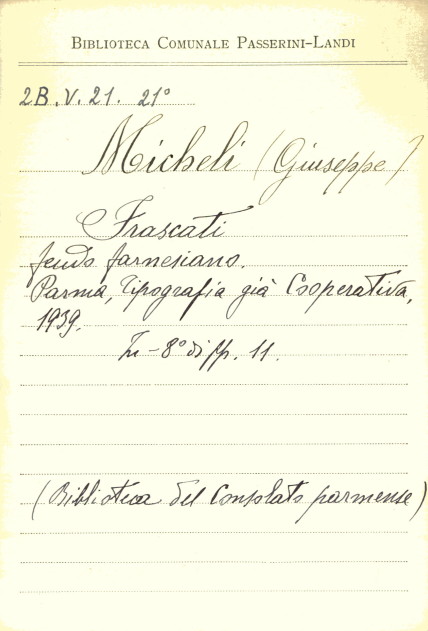 BIBLIOTECA COMUNALE PASSERINI-LANDI
2B.V.21. 21°
Micheli (Giuseppe)
Frascati
feudo farnesiano.
Parma, Tipografia già Cooperativa,
1939.
In-8° di pp. 11.
(Biblioteca del Consolato parmense)